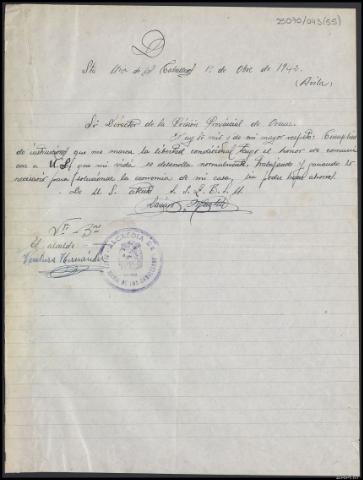 25070/043(55)
D
Sta Mª de del (Caballero) 1º de Obre de 194
(Avila)
Sr Director de la Prisión Provincial de
Muy Sr mio y de mi mayor respeto: Cumpliendo
de instrucciones que me marca la libertad condicional tengo el honor de comunicar
a V.S. que mi vida se desenvuelve normalmente, trabajando y ganando lo
necesario para solucionar la economia de mi casa, sin poder lograr ahorrar.
De U. S. affmo S. S. L. B. L. M
Vº - Bno
El alcalde
Ventura Hernández
ALCALDIA DE
MARIA DE LOS CABALLEROS